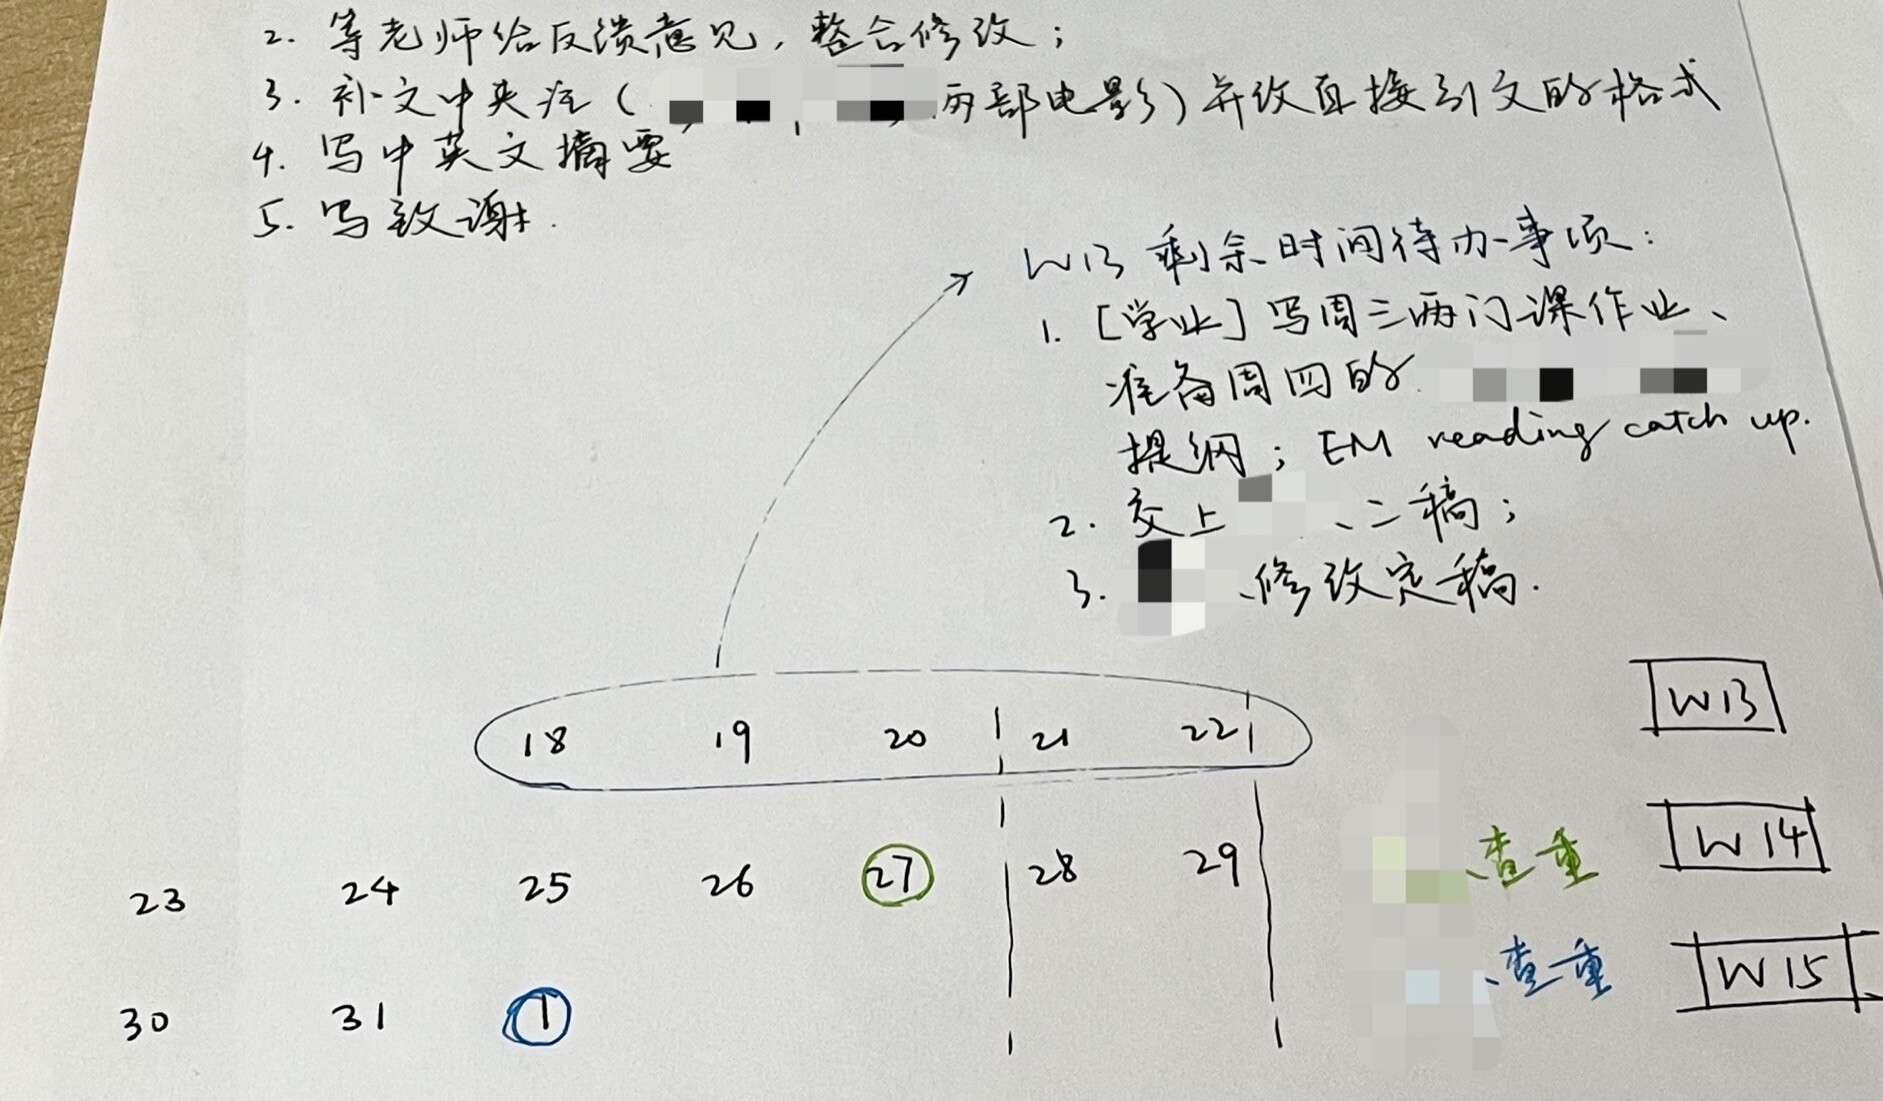 2. 等老师给反馈意见，整合修改；
3. 补文中夹注（ 两部电影）并改直接引文的格式
4. 写中英文摘要
5. 写致谢.
W13 剩余时间待办事项：
1. [学业] 写周三两门课作业、
准备周四的
提纲；EM reading catch up.
2. 交上 二稿；
3. 修改定稿.
W13
18 19 20 21 22
W14
23 24 25 26 27 28 29 查重
W15
30 31 1 查重